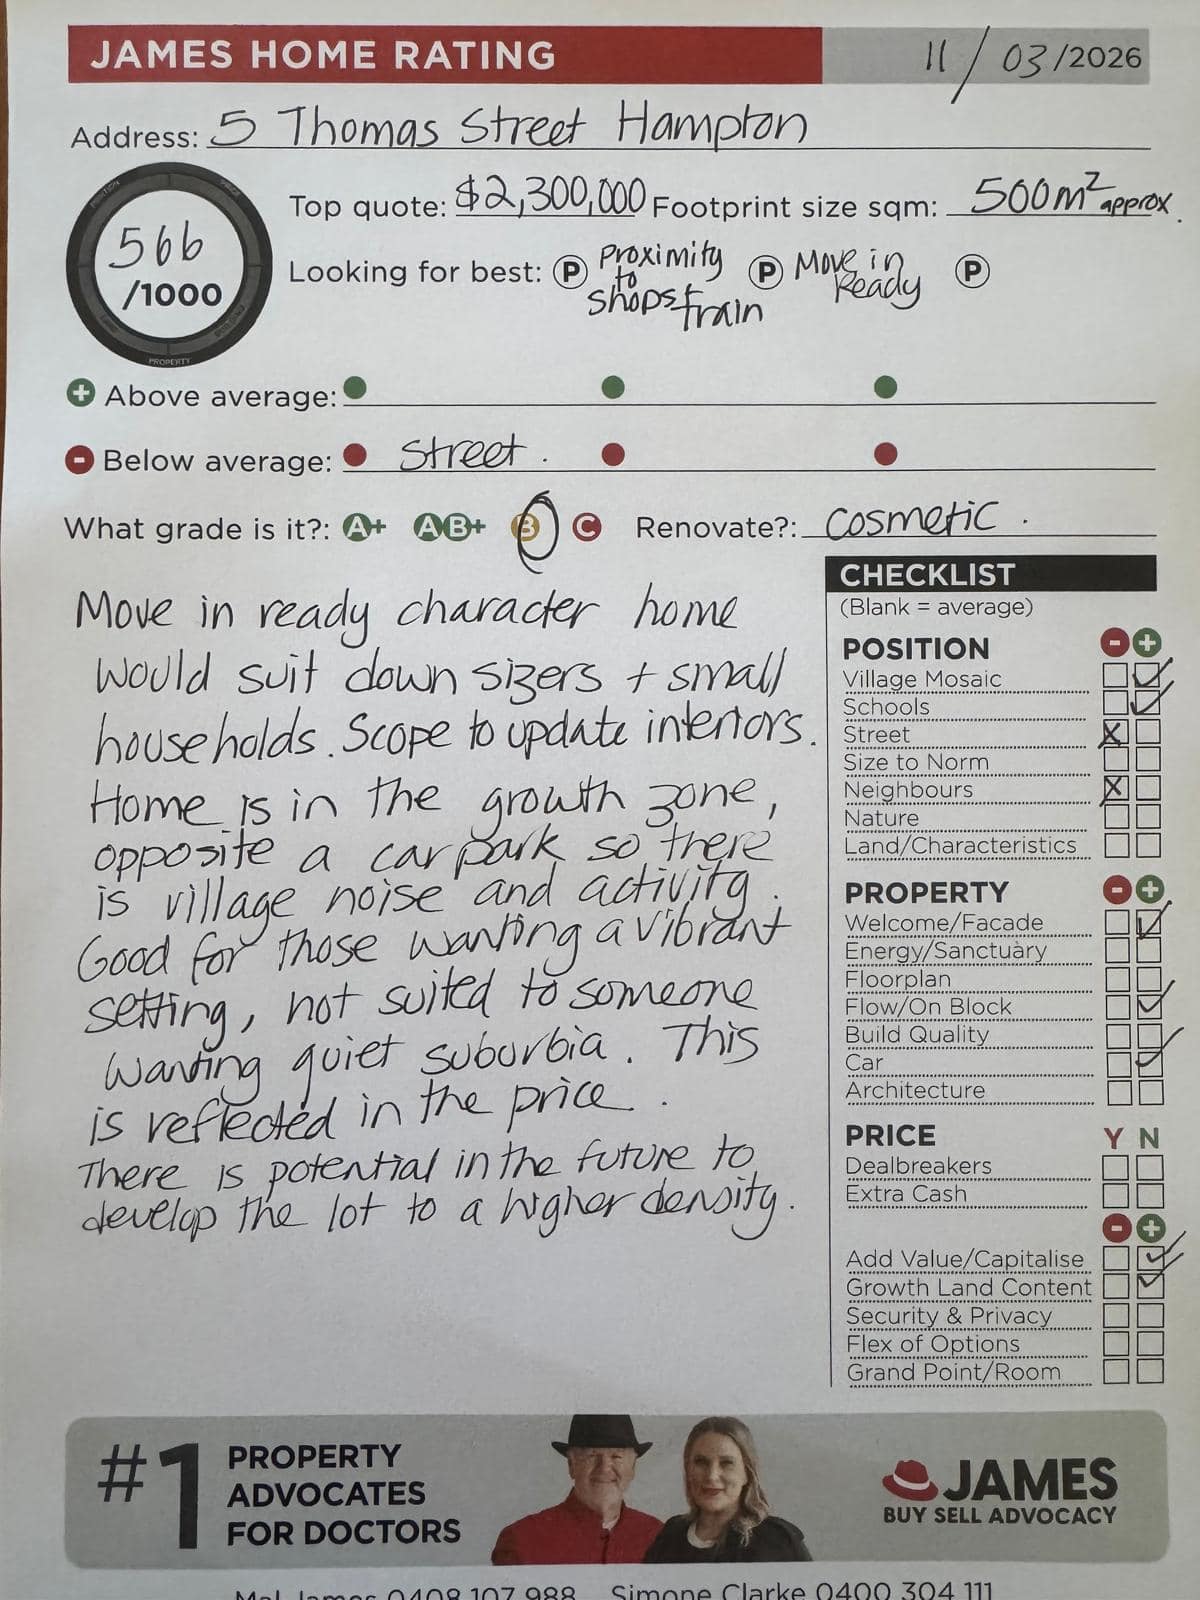 JAMES HOME RATING
11/03/2026
Address: 5 Thomas Street Hampton
566
/1000
PROPERTY
Top quote: $2,300,000 Footprint size sqm: 500m² approx
Looking for best: P Proximity to shops + train P Move in Ready P
+ Above average:
- Below average: Street.
What grade is it?: A+ AB+ B C Renovate?: cosmetic.
Move in ready character home
would suit down sizers + small
households. Scope to update interiors.
Home is in the growth zone,
opposite a car park so there
is village noise and activity.
Good for those wanting a vibrant
setting, not suited to someone
wanting quiet suburbia. This
is reflected in the price.
There is potential in the future to
develop the lot to a higher density.
CHECKLIST
(Blank = average)
POSITION - +
Village Mosaic
Schools
Street X
Size to Norm
Neighbours X
Nature
Land/Characteristics
PROPERTY - +
Welcome/Facade
Energy/Sanctuary
Floorplan
Flow/On Block
Build Quality
Car
Architecture
PRICE Y N
Dealbreakers
Extra Cash
- +
Add Value/Capitalise
Growth Land Content
Security & Privacy
Flex of Options
Grand Point/Room
#1 PROPERTY
ADVOCATES
FOR DOCTORS
JAMES
BUY SELL ADVOCACY
Mal James 0408 107 988 Simone Clarke 0400 304 111